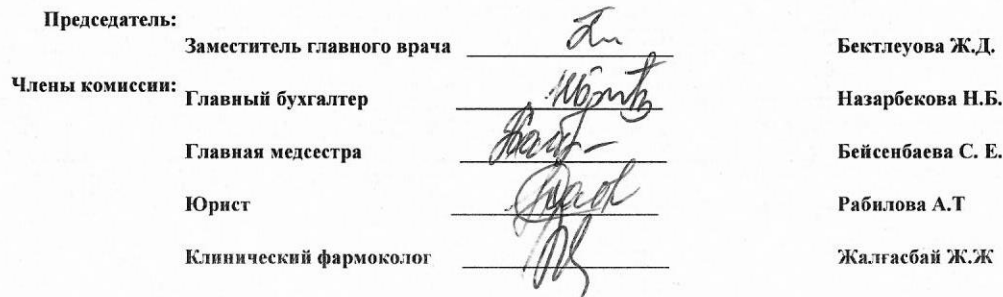 Председатель:
Заместитель главного врача Бектлеуова Ж.Д.
Члены комиссии:
Главный бухгалтер Назарбекова Н.Б.
Главная медсестра Бейсенбаева С. Е.
Юрист Рабилова А.Т
Клинический фармоколог Жалғасбай Ж.Ж